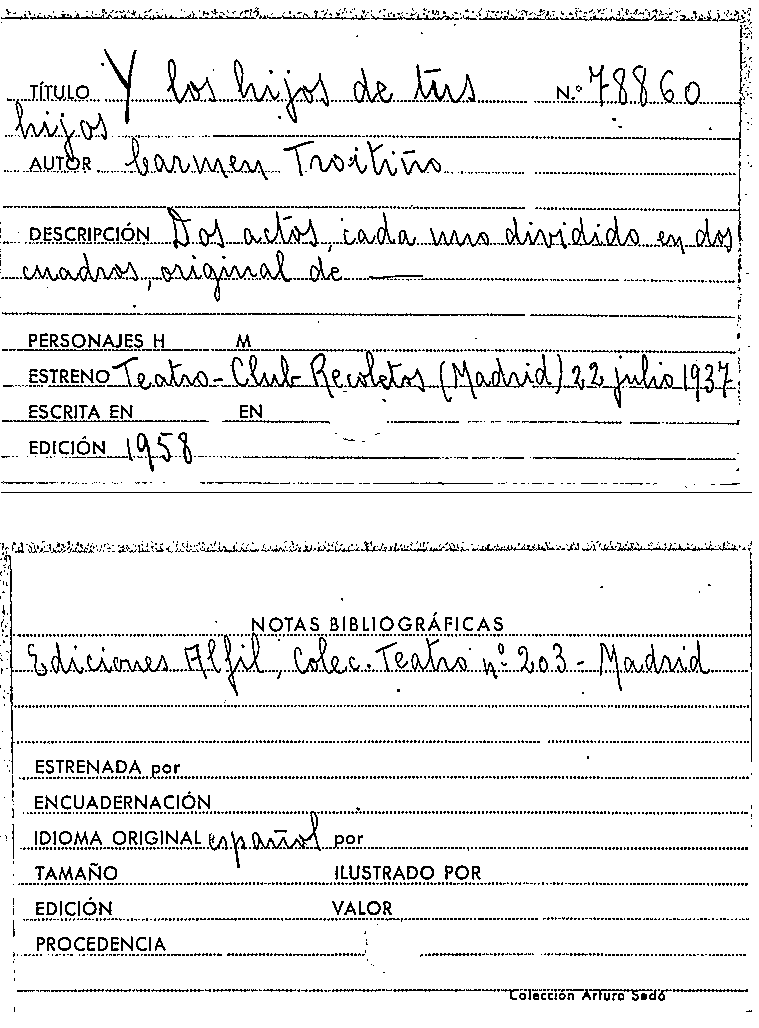 TÍTULO Y los hijos de tus N.º 78860
hijos
AUTOR Carmen Troitiño
DESCRIPCIÓN Dos actos, cada uno dividido en dos
cuadros, original de —
PERSONAJES H M
ESTRENO Teatro-Club-Recoletos (Madrid) 22 julio 1937
ESCRITA EN EN
EDICIÓN 1958
NOTAS BIBLIOGRÁFICAS
Ediciones Alfil, Colec. Teatro nº 203 - Madrid
ESTRENADA por
ENCUADERNACIÓN
IDIOMA ORIGINAL español por
TAMAÑO ILUSTRADO POR
EDICIÓN VALOR
PROCEDENCIA
Colección Arturo Sedó